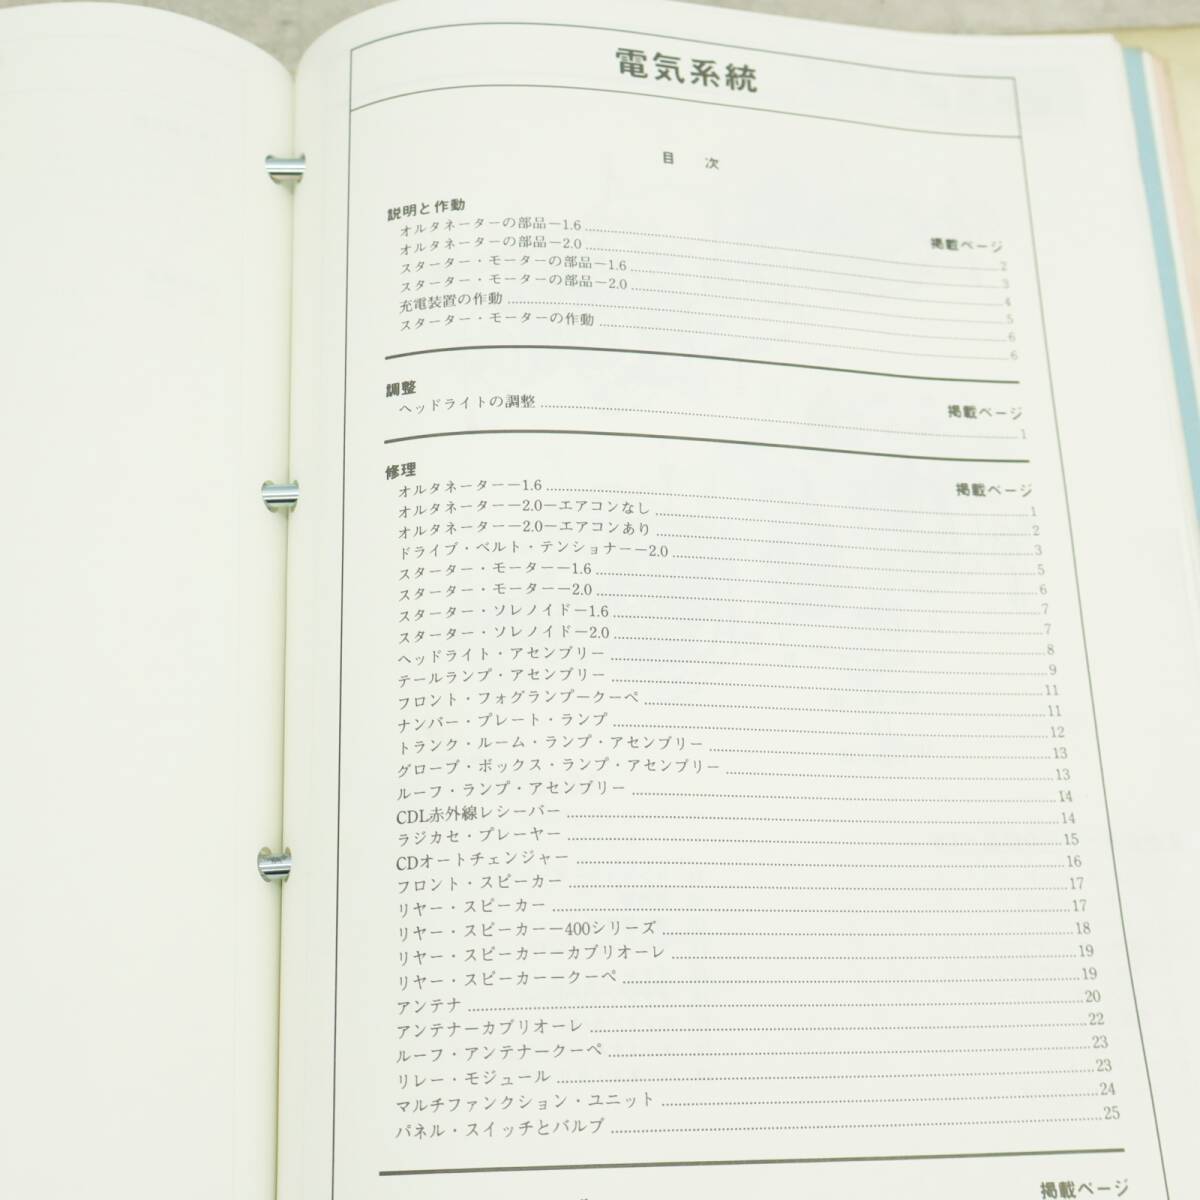 電気系統
目 次
説明と作動
掲載ページ
オルタネーターの部品－1.6 2
オルタネーターの部品－2.0 3
スターター・モーターの部品－1.6 4
スターター・モーターの部品－2.0 5
充電装置の作動 6
スターター・モーターの作動 6
調整
掲載ページ
ヘッドライトの調整 1
修理
掲載ページ
オルタネーター－1.6 1
オルタネーター－2.0－エアコンなし 2
オルタネーター－2.0－エアコンあり 3
ドライブ・ベルト・テンショナー－2.0 5
スターター・モーター－1.6 6
スターター・モーター－2.0 7
スターター・ソレノイド－1.6 7
スターター・ソレノイド－2.0 8
ヘッドライト・アセンブリー 9
テールランプ・アセンブリー 11
フロント・フォグランプ－クーペ 11
ナンバー・プレート・ランプ 12
トランク・ルーム・ランプ・アセンブリー 13
グローブ・ボックス・ランプ・アセンブリー 13
ルーフ・ランプ・アセンブリー 14
CDL赤外線レシーバー 14
ラジカセ・プレーヤー 15
CDオートチェンジャー 16
フロント・スピーカー 17
リヤー・スピーカー 17
リヤー・スピーカー－400シリーズ 18
リヤー・スピーカー－カブリオーレ 19
リヤー・スピーカー－クーペ 19
アンテナ 20
アンテナ－カブリオーレ 22
ルーフ・アンテナ－クーペ 23
リレー・モジュール 23
マルチファンクション・ユニット 24
パネル・スイッチとバルブ 25
掲載ページ